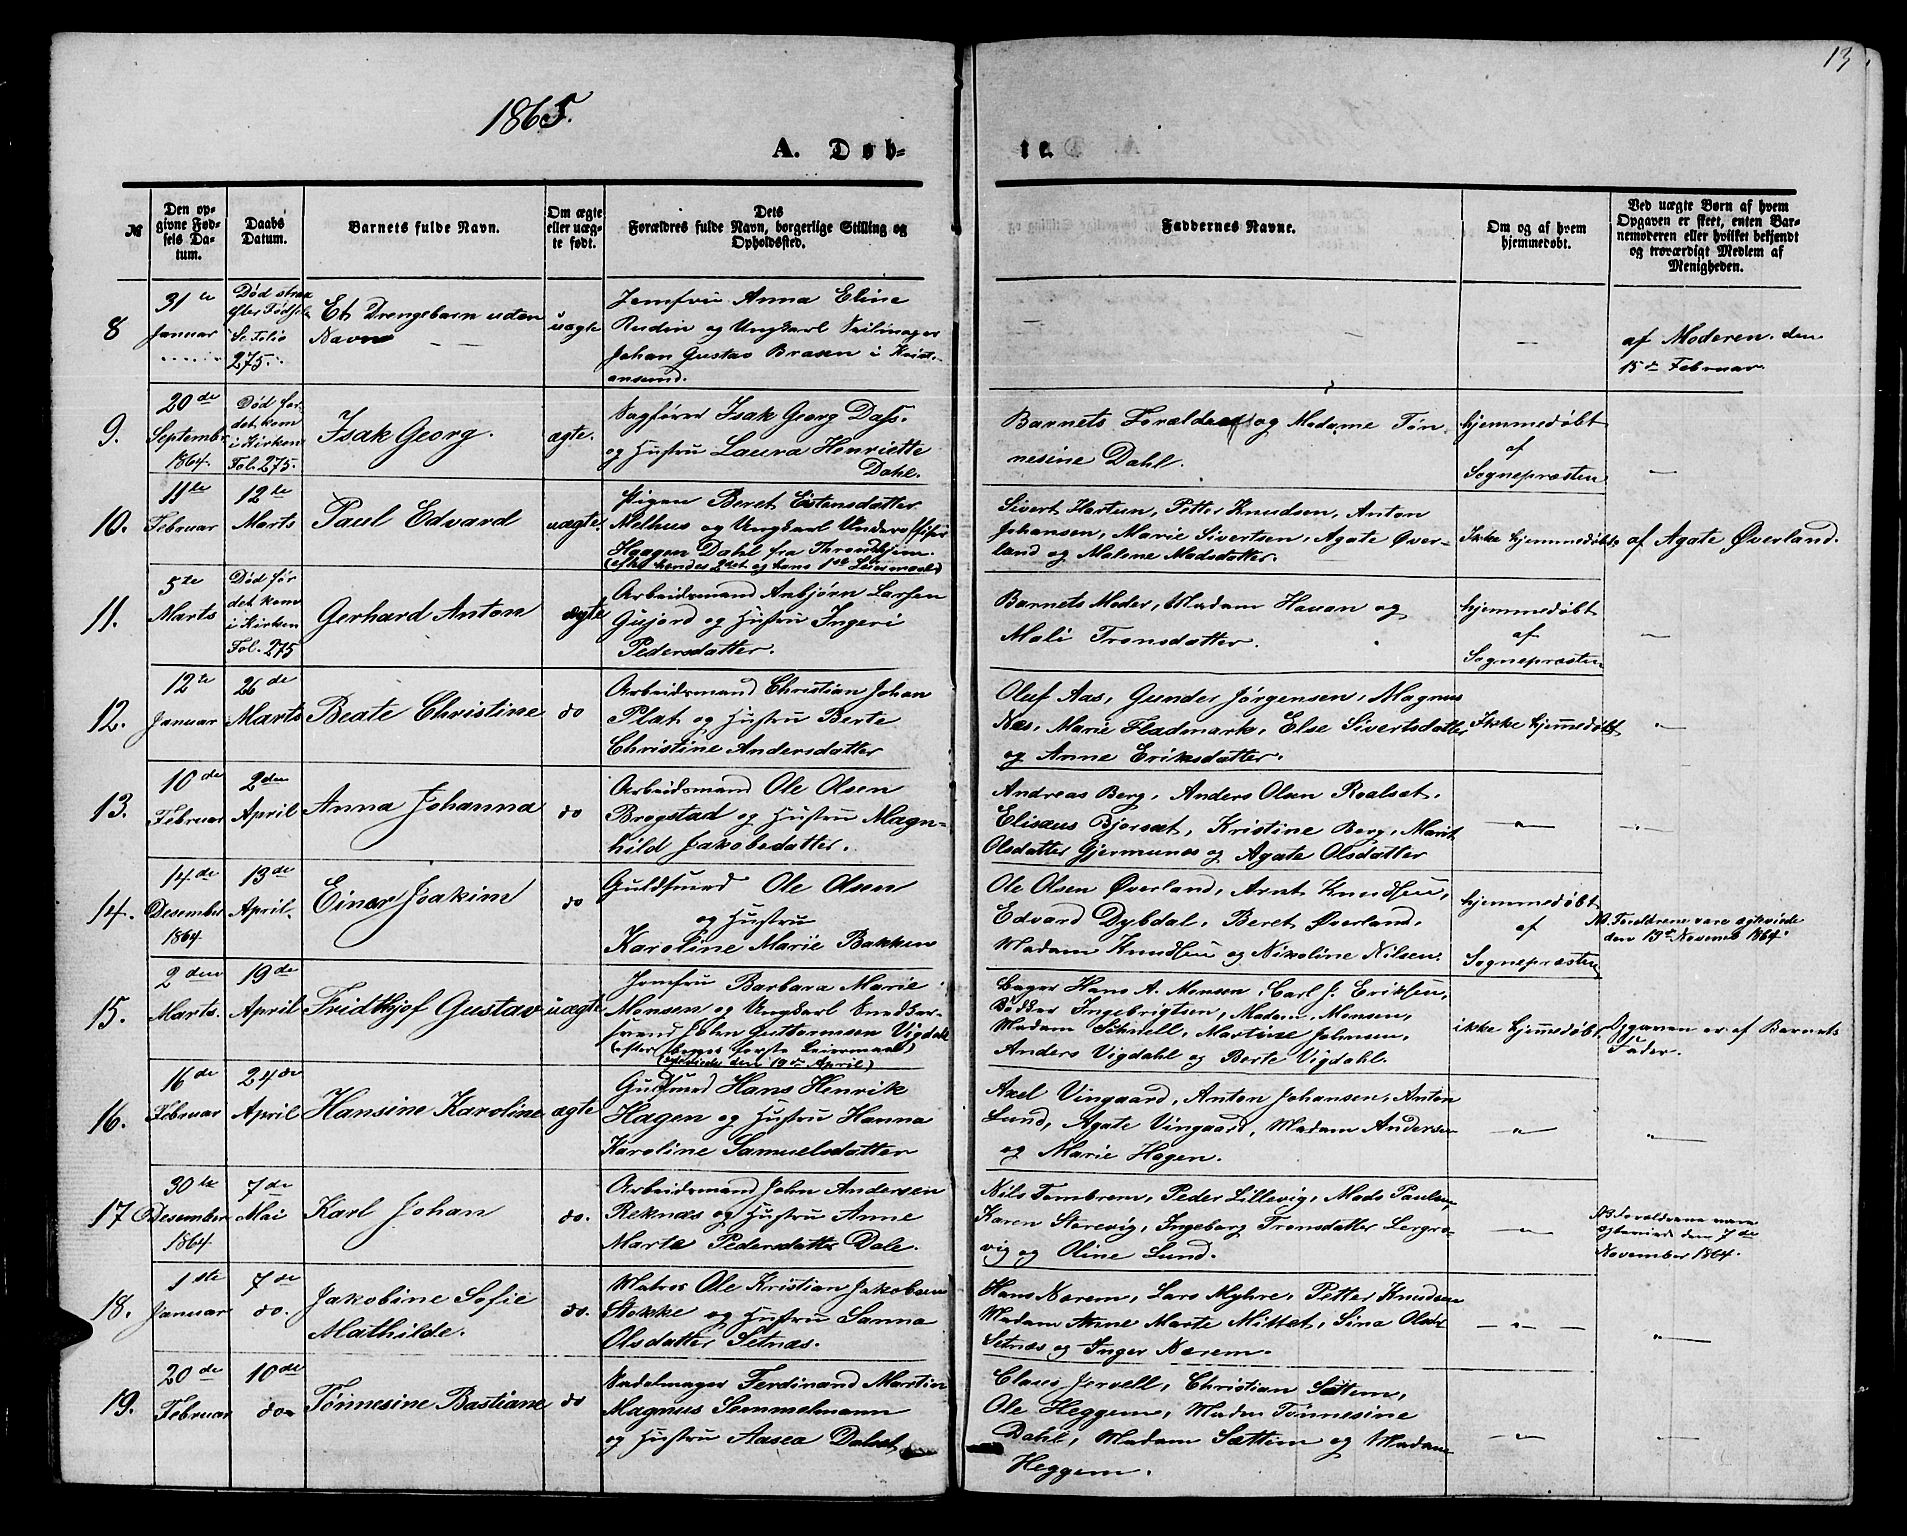 13
1865.
A. Døb-
te.
№
Den op-
givne Fød-
sels Da-
tum.
Daabs
Datum.
Barnets fulde Navn.
Om ægte
eller uæg-
te født.
Dets
Forældres fulde Navn, borgerlige Stilling og
Opholdssted.
Faddernes Navne.
Om og af hvem
hjemmedøbt.
Ved uægte Børn af hvem
Opgaven er skeet, enten Bar-
nemoderen eller hvilket bekjendt
og troværdigt Medlem af
Menigheden.
8
31te
Januar
Død strax
efter Fødsel
Se Folio
275.
Et Drengebarn uden
Navn
uægte
Jomfru Anna Eline
Rudin og Ungkarl Seilmager
Johan Gustav Brasen i Krist-
ansund.
af Moderen den
15de Februar
9.
20de
September
1864.
Død før
det kom
i Kirken
Fol. 275.
Isak Georg.
ægte.
Sagfører Isak Georg Dass.
og Hustru Laura Henriette
Dahl.
Barnets Forældre og Madame Tøn
nesine Dahl.
hjemmedøbt
af
Sognepræsten
10.
11te
Februar
12te
Marts
Paul Edvard
uægte.
Pigen Beret Estensdatter
Melhus og Ungkarl Underoffiser
Haagen Dahl fra Throndhjem.
(efter hendes 2det og hans 1ste Leiermaal)
Sivert Hartun, Petter Knudsen, Anton
Johansen, Marie Sivertsen, Agate Øver-
land og Malene Madsdatter.
Ikke hjemmedøbt
af Agate Øverland.
11.
5te
Marts
Død før
det kom
i Kirken
Fol. 275
Gerhard Anton
ægte
Arbeidsmand Anbjørn Larsen
Gujord og Hustru Ingeri
Pedersdatter.
Barnets Moder, Madam Haven og
Mali Tronsdatter.
hjemmedøbt
af
Sognepræsten
12.
12te
Januar
26de
Marts
Beate Christine
do
Arbeidsmand Christian Johan
Plat og Hustru Berte
Christine Andersdatter
Oluf Aas, Gunder Jørgensen, Magnus
Næs, Marie Fladmark, Else Sivertsdatter
og Anne Eriksdatter.
Ikke hjemmedøbt
13.
10de
Februar
2den
April
Anna Johanna
do
Arbeidsmand Ole Olsen
Brogstad og Hustru Magn-
hild Jakobsdatter.
Andreas Berg, Anders Olsen Roalset,
Elisæus Bjorsæt, Kristine Berg, Marit
Olsdatter Gjermunes og Agate Olsdatter
14.
14de
Desember
1864
13de
April.
Einar Joakim
do
Guldsmed Ole Olsen
og Hustru
Karoline Marie Bakken
Ole Olsen Øverland, Arnt Knudsen,
Edvard Dybdal, Beret Øverland,
Madam Knudsen og Nikoline Nilsen.
hjemmedøbt
af
Sognepræsten
NB. Forældrene vare ægteviede
den 13de Novemb 1864.
15.
2den
Marts.
19de
April
Fridthjof Gustav
uægte
Jomfru Barbara Marie
Monsen og Ungkarl Snedker-
svend John Guttormsen Vigdahl
(efter begges første Leiermaal)
(ægteviede den 19de April)
Bager Hans A. Monsen, Carl J. Eriksen,
Bødker Ingebrigtsen, Madam Monsen,
Madam Schnell, Martine Johnsen,
Anders Vigdahl og Berte Vigdahl.
ikke hjemmedøbt
Opgaven er af Barnets
Fader.
16.
16de
Februar
24de
April
Hansine Karoline
ægte
Guldsmed Hans Henrik
Hagen og Hustru Hanna
Karoline Samuelsdatter
Axel Vingaard, Anton Johansen, Anton
Lund, Agate Vingaard, Madam Andersen
og Marie Hagen.
17
30te
Desember
1864
7de
Mai
Karl Johan
do.
Arbeidsmand John Andersen
Reknæs og Hustru Anne
Marta Pedersdatter Dale.
Nils Tombrem, Peder Lillevig, Mads Paulsen,
Karen Storevig, Ingeborg Tronsdatter Lergro-
vig og Oline Lund.
NB Forældrene vare
ægteviede den 7de
November 1864.
18.
1ste
Januar
7de
do.
Jakobine Sofie
Mathilde.
do.
Matros Ole Kristian Jakobsen
Stokke og Hustru Sanna
Olsdatter Setnæs.
Hans Nærem, Lars Myhre, Petter Knudsen
Madam Anne Marte Mittet, Sina Olsdr
Setnæs og Inger Nærem.
19.
20de
Februar
10de
do
Tønnesine Bastiane
do
Sadelmager Ferdinand Martin
Magnus Semmelmann
og Hustru Aasea Dalset
Claus Jervell, Christian Sættem,
Ole Heggem, Madam Tønnesine
Dahl, Madam Sættem og Madam
Heggem.